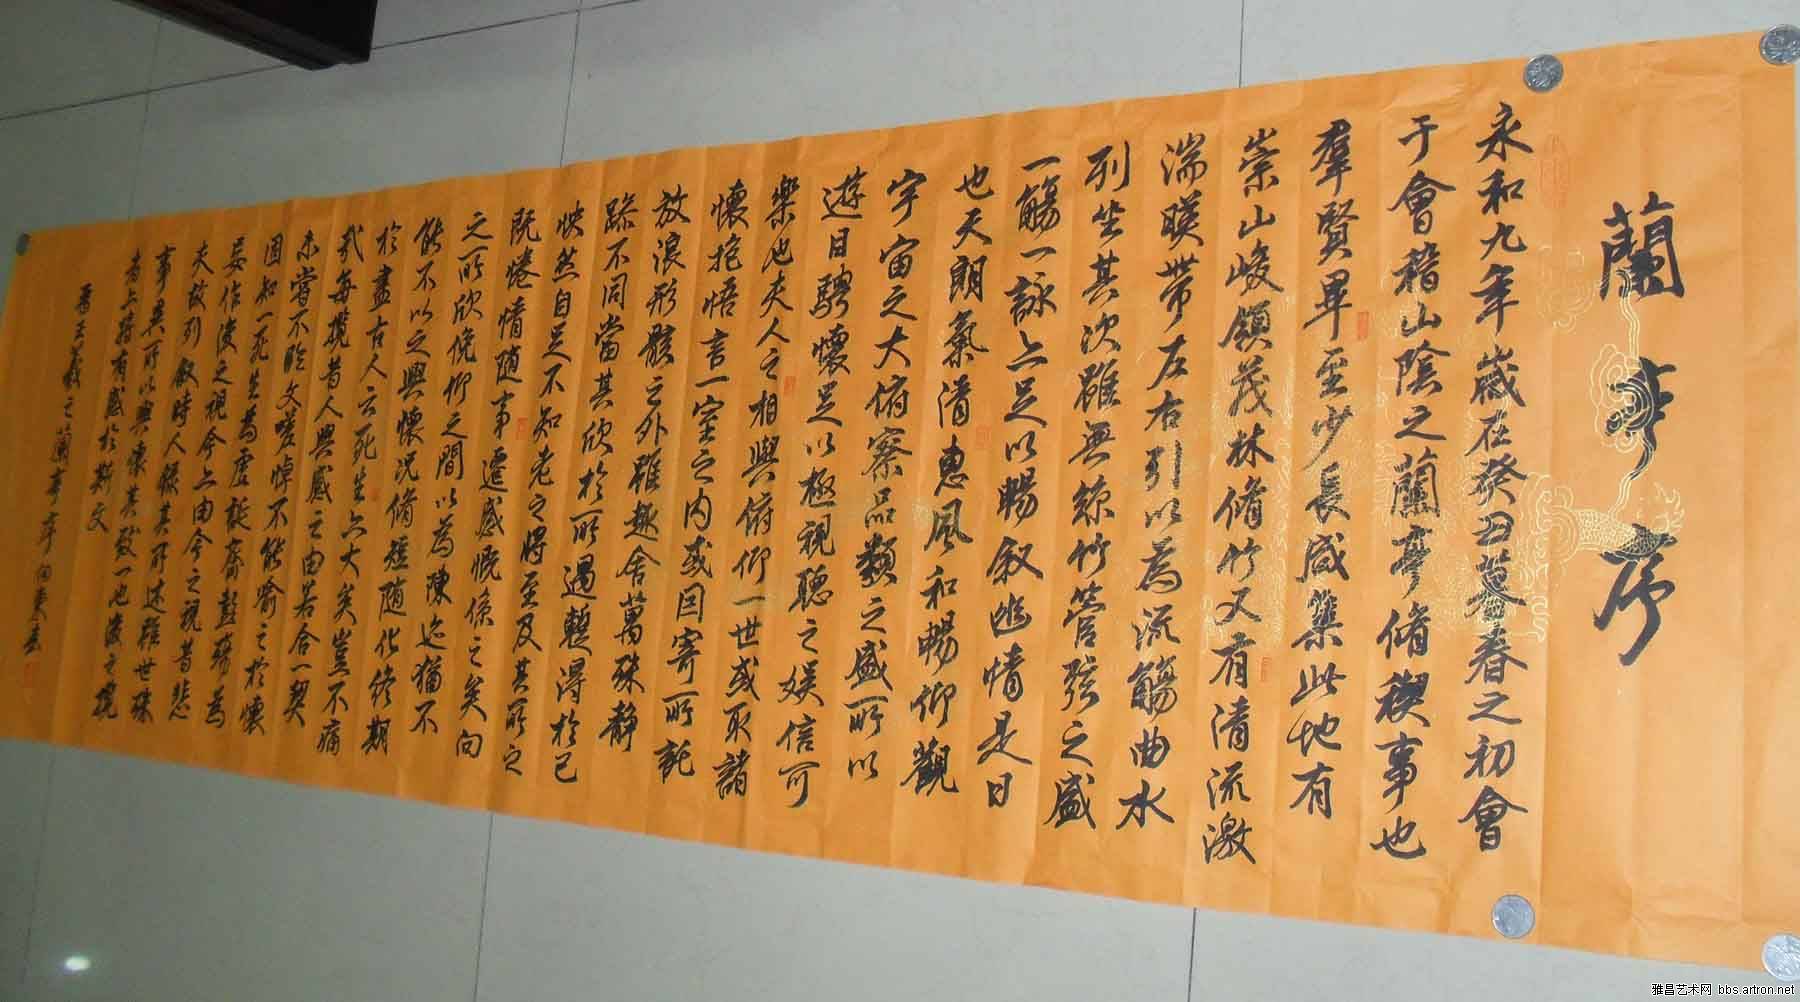 蘭亭序
永和九年歲在癸丑暮春之初會
于會稽山陰之蘭亭脩禊事也
羣賢畢至少長咸集此地有
崇山峻領茂林脩竹又有清流激
湍暎帶左右引以為流觴曲水
列坐其次雖無絲竹管弦之盛
一觴一詠亦足以暢叙幽情是日
也天朗氣清惠風和暢仰觀
宇宙之大俯察品類之盛所以
遊目騁懷足以極視聽之娛信可
樂也夫人之相與俯仰一世或取諸
懷抱悟言一室之內或因寄所託
放浪形骸之外雖趣舍萬殊靜
躁不同當其欣於所遇蹔得於己
怏然自足不知老之將至及其所之
既惓情隨事遷感慨係之矣向
之所欣俛仰之間以為陳迹猶不
能不以之興懷況脩短隨化終期
於盡古人云死生亦大矣豈不痛
哉每攬昔人興感之由若合一契
未嘗不臨文嗟悼不能喻之於懷
固知一死生為虛誕齊彭殤為
妄作後之視今亦由今之視昔悲
夫故列叙時人錄其所述雖世殊
事異所以興懷其致一也後之攬
者亦將有感於斯文
王羲之蘭亭序
雅昌艺术网 bbs.artron.net